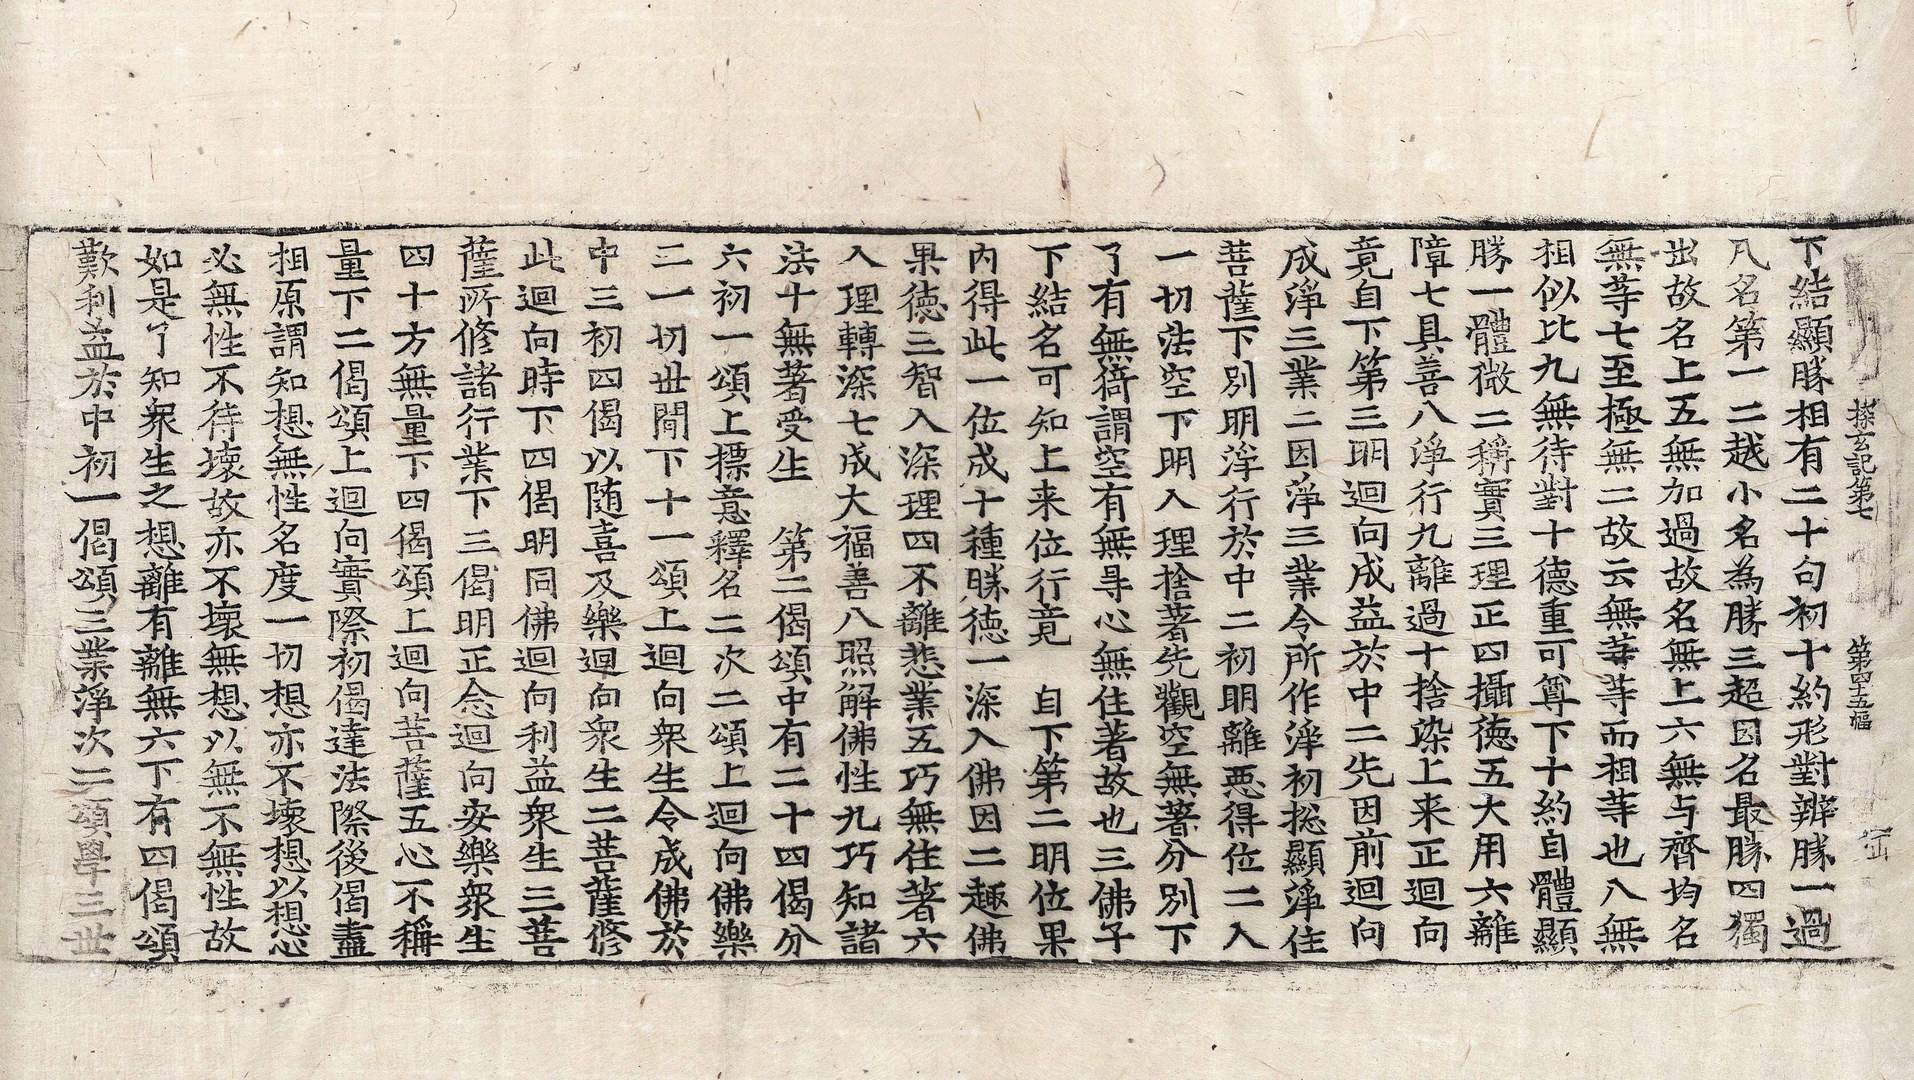 探玄記第七 第四十五幅
下結顯勝相有二十句初十約形對辨勝一過
凡名第一二越小名為勝三超因名最勝四獨
出故名上五無加過故名無上六無与齊均名
無等七至極無二故云無等等而相等也八無
相似比九無待對十德重可尊下十約自體顯
勝一體微二稱實三理正四攝德五大用六離
障七具善八淨行九離過十捨染上来正迴向
竟自下第三明迴向成益於中二先因前迴向
成淨三業二因淨三業令所作淨初揔顯淨住
菩薩下別明淨行於中二初明離惡得位二入
一切法空下明入理捨著先觀空無著分別下
了有無猗謂空有無㝵心無住著故也三佛子
下結名可知上来位行竟 自下第二明位果
内得此一位成十種勝德一深入佛因二趣佛
果德三智入深理四不離悲業五巧無住著六
入理轉深七成大福善八照解佛性九巧知諸
法十無著受生 第二偈頌中有二十四偈分
六初一頌上標意釋名二次二頌上迴向佛樂
三一切世間下十一頌上迴向衆生令成佛於
中三初四偈以随喜及樂迴向衆生二菩薩修
此迴向時下四偈明同佛迴向利益衆生三菩
薩所修諸行業下三偈明正念迴向安樂衆生
四十方無量下四偈頌上迴向菩薩五心不稱
量下二偈頌上迴向實際初偈達法際後偈盡
相原謂知想無性名度一切想亦不壞想以想心
必無性不待壞故亦不壞無想以無不無性故
如是了知衆生之想離有離無六下有四偈頌
歎利益於中初一偈頌三業淨次二頌學三世